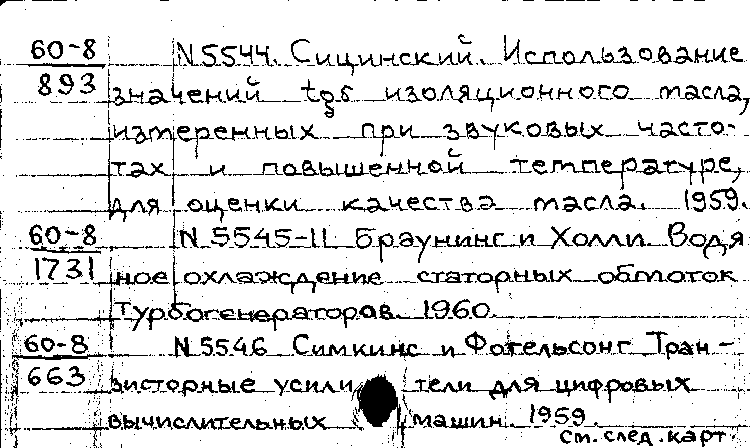 60-8 N 5544. Сицинский. Использование
893 значений tgδ изоляционного масла,
измеренных при звуковых часто-
тах и повышенной температуре,
для оценки качества масла. 1959.
60-8 N 5545-II Браунинг и Холли. Водя
1731 ное охлаждение статорных обмоток
Турбогенераторов. 1960.
60-8 N 5546 Симкинс и Фогельсонг Тран-
663 зисторные усилители для цифровых
вычислительных машин. 1959.
см. след. карт.